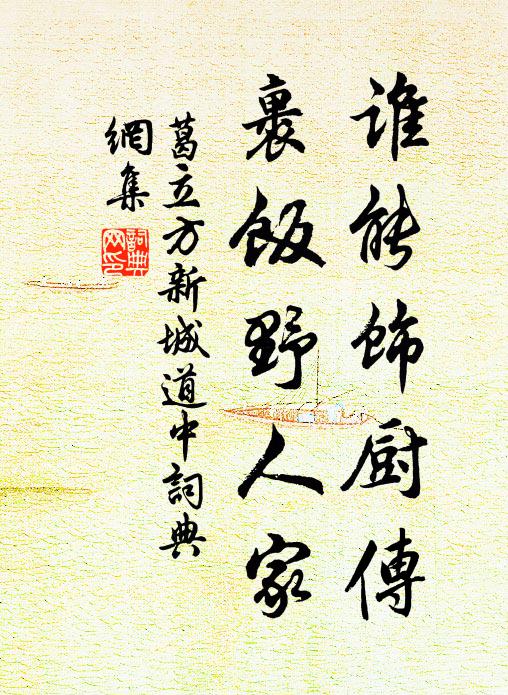 谁能饰厨傳
裹飯野人家
葛立方新城道中詞典
網集
詞典網印